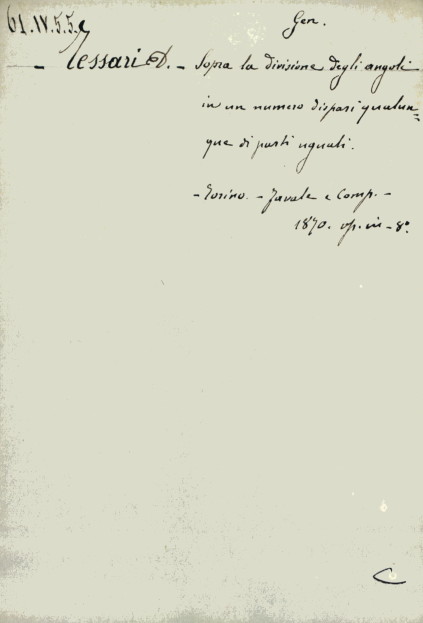 61.IV.5.5.9
Gen.
- Tessari D. - Sopra la divisione degli angoli
in un numero dispari qualun=
que di parti uguali.
- Torino. - Favale e Comp. -
1870. op. in - 8º.